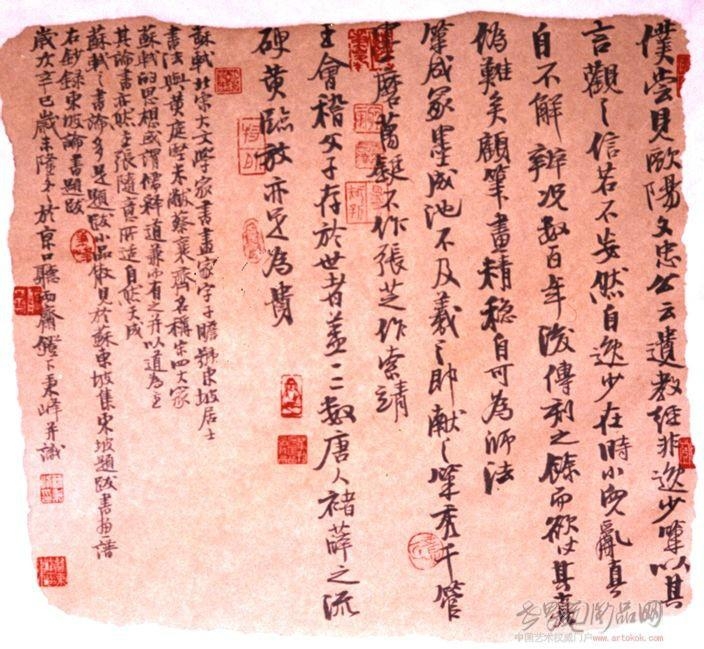 僕嘗見歐陽文忠公云遺教經非逸少筆以其
言觀之信若不妄然自逸少在時小兒亂真
自不解辨况数百年後傳刻之餘而欲其真
偽難矣顧筆畫精穩自可為師法
筆成冢墨成池不及羲之即獻之筆秃千管
墨磨萬鋌不作張芝作索靖
王會稽父子存於世者蓋一二数唐人褚薛之流
硬黄臨放亦足為貴
蘇軾北宋大文學家書畫家字子瞻號東坡居士
書法與黄庭堅米芾蔡襄齊名稱宋四大家
蘇軾的思想或謂儒釋道兼而有之并以道為主
其論書亦然主張隨意所適自然天成
蘇軾之書論多是題跋小品散見於蘇東坡集東坡題跋書畫譜
右鈔録東坡論書題跋
歲次辛巳歲末隆冬於京口聽雨齋燈下東峰并識
中国艺术权威门户www.artokok.com